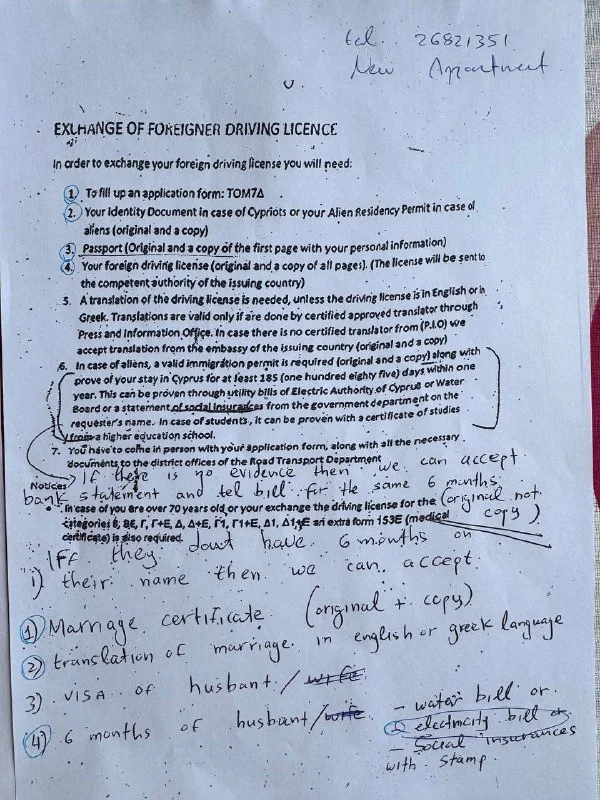 tel. 26821351
New Apartment
EXCHANGE OF FOREIGNER DRIVING LICENCE
In order to exchange your foreign driving license you will need:
1. To fill up an application form: TOM7Δ
2. Your Identity Document in case of Cypriots or your Alien Residency Permit in case of
aliens (original and a copy)
3. Passport (Original and a copy of the first page with your personal information)
4. Your foreign driving license (original and a copy of all pages). (The license will be sent to
the competent authority of the issuing country)
5. A translation of the driving license is needed, unless the driving license is in English or in
Greek. Translations are valid only if are done by certified approved translator through
Press and Information Office. In case there is no certified translator from (P.I.O) we
accept translation from the embassy of the issuing country (original and a copy)
6. In case of aliens, a valid immigration permit is required (original and a copy) along with
prove of your stay in Cyprus for at least 185 (one hundred eighty five) days within one
year. This can be proven through utility bills of Electric Authority of Cyprus or Water
Board or a statement of social insurances from the government department on the
requester's name. In case of students, it can be proven with a certificate of studies
from a higher education school.
7. You have to come in person with your application form, along with all the necessary
documents to the district offices of the Road Transport Department
If there is no evidence then we can accept
Notices
bank statement and tel bill for the same 6 months
(original not copy)
In case of you are over 70 years old or your exchange the driving license for the
categories B, BE, Γ, Γ+E, Δ, Δ+E, Γ1, Γ1+E, Δ1, Δ1+E an extra form 153E (medical
certificate) is also required.
IFF they dont have 6 months on
i) their name then we can accept.
1) Marriage certificate (original + copy)
2) translation of marriage in english or greek language
3) VISA of husbant / wife
4) 6 months of husbant / wife
- water bill or
electricity bill or
- Social insurances
with stamp.